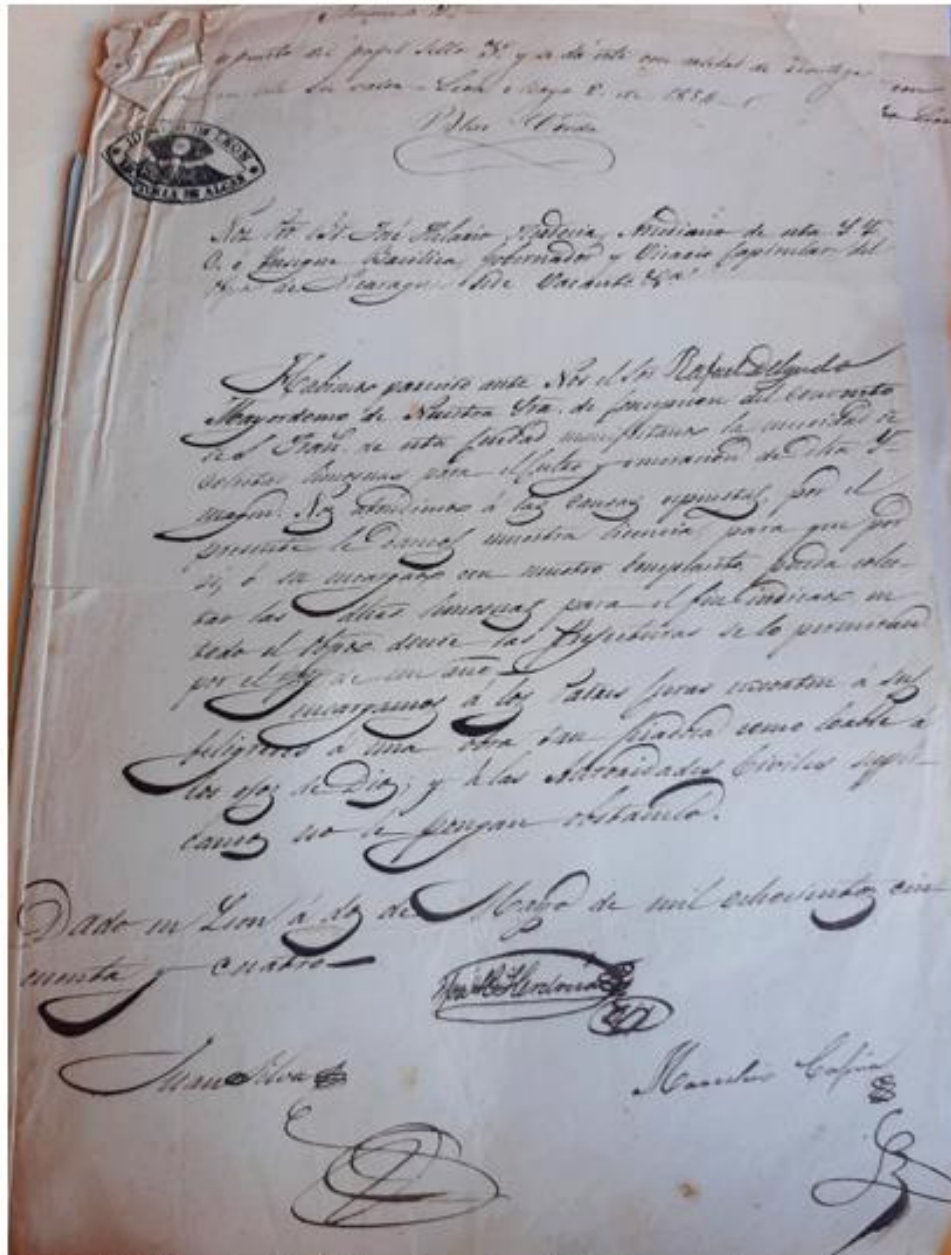 del papel sello 3º y se dá este con calidad de
su valor León Mayo 2. de 1854
JUZGADO DE LEON
HISTORIA DE ALCAN
Nos Pro Br. José Hilario Herdocia, Arcediano de esta S. Y.
C. e Insigne Basilica, Gobernador y Vicario Capitular del
Opdo de Nicaragua Sede Vacante &a
Habiendo parecido ante Nos el Sor Rafael Delgado
Mayordomo de Nuestra Sra. de Concepcion del Convento
de S. Fran. de esta Ciudad manifestanos la necesidad de
colectar limosnas para el culto y veneracion de dha Y-
magen. Nos atendimos á las causas espuestas, por el
presente le damos nuestra licencia, para que por
si, ó su encargado con nuestro complacito pueda colec-
tar las dhas limosnas para el fin indicado en
todo el Obpdo donde las Prefecturas se lo permitan
por el de un año
Encargamos á los Padres Curas exorten á sus
feligreses á una obra tan piadosa como loable á
los ojos de Dios; y á las Autoridades Civiles supli-
camos no le pongan obstaculo.
Dado en Leon á dos de Mayo de mil ochosientos cin
cuenta y cuatro
José H. Herdocia
Juan Silva